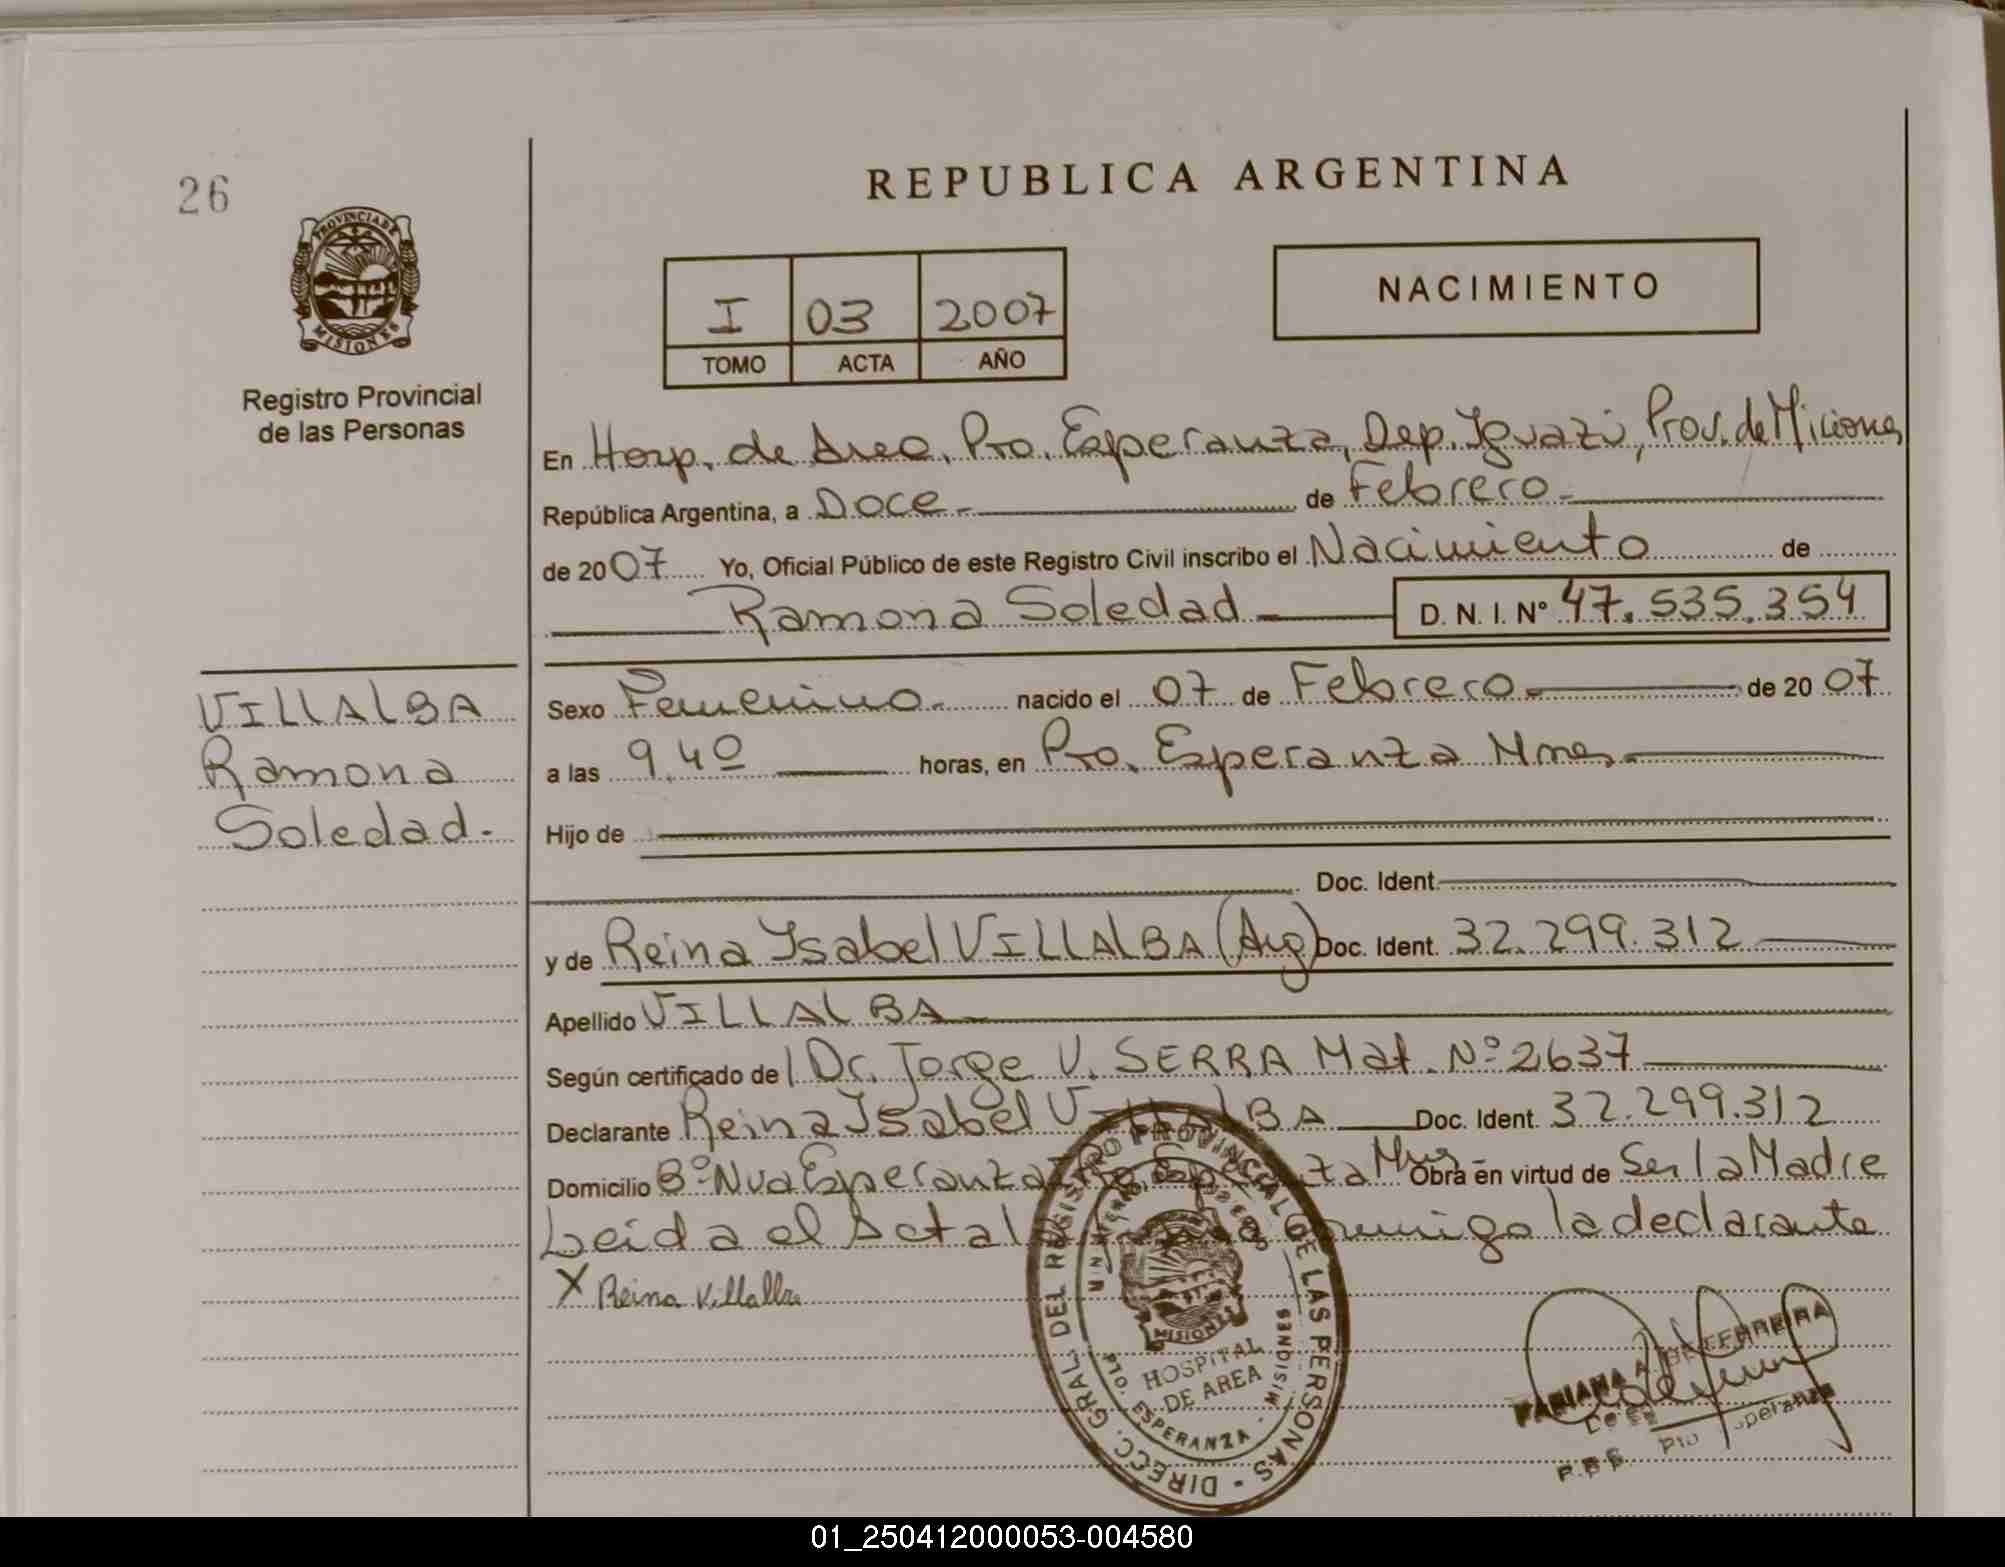 26
REPUBLICA ARGENTINA
PROVINCIA DE
MISIONES
Registro Provincial
de las Personas
I 03 2007
TOMO ACTA AÑO
NACIMIENTO
En Hosp. de Area, Pto. Esperanza, Dep. Iguazú, Prov. de Misiones
República Argentina, a Doce.- de Febrero.-
de 2007 Yo, Oficial Público de este Registro Civil inscribo el Nacimiento de
Ramona Soledad D. N. I. Nº 47.535.354
VILLALBA
Ramona
Soledad.-
Sexo Femenino.- nacido el 07 de Febrero.- de 2007
a las 9,40 horas, en Pto. Esperanza Mnes.-
Hijo de
Doc. Ident.
y de Reina Ysabel VILLALBA (Arg) Doc. Ident. 32.299.312
Apellido VILLALBA.-
Según certificado de Dr. Jorge V. SERRA Mat. Nº 2637
Declarante Reina Ysabel VILLALBA Doc. Ident. 32.299.312
Domicilio Bº Nva Esperanza Pto Esperanza Mnes Obra en virtud de Ser la Madre
Leida el Acta la conmigo la declarante
X Reina Villalba
DIRECC. GRAL. DEL REGISTRO PROVINCIAL DE LAS PERSONAS -
MISIONES
HOSPITAL
DE AREA
PTO. ESPERANZA - MISIONES
FABIANA A. DE FERREIRA
Pto Esperanza
01_250412000053-004580